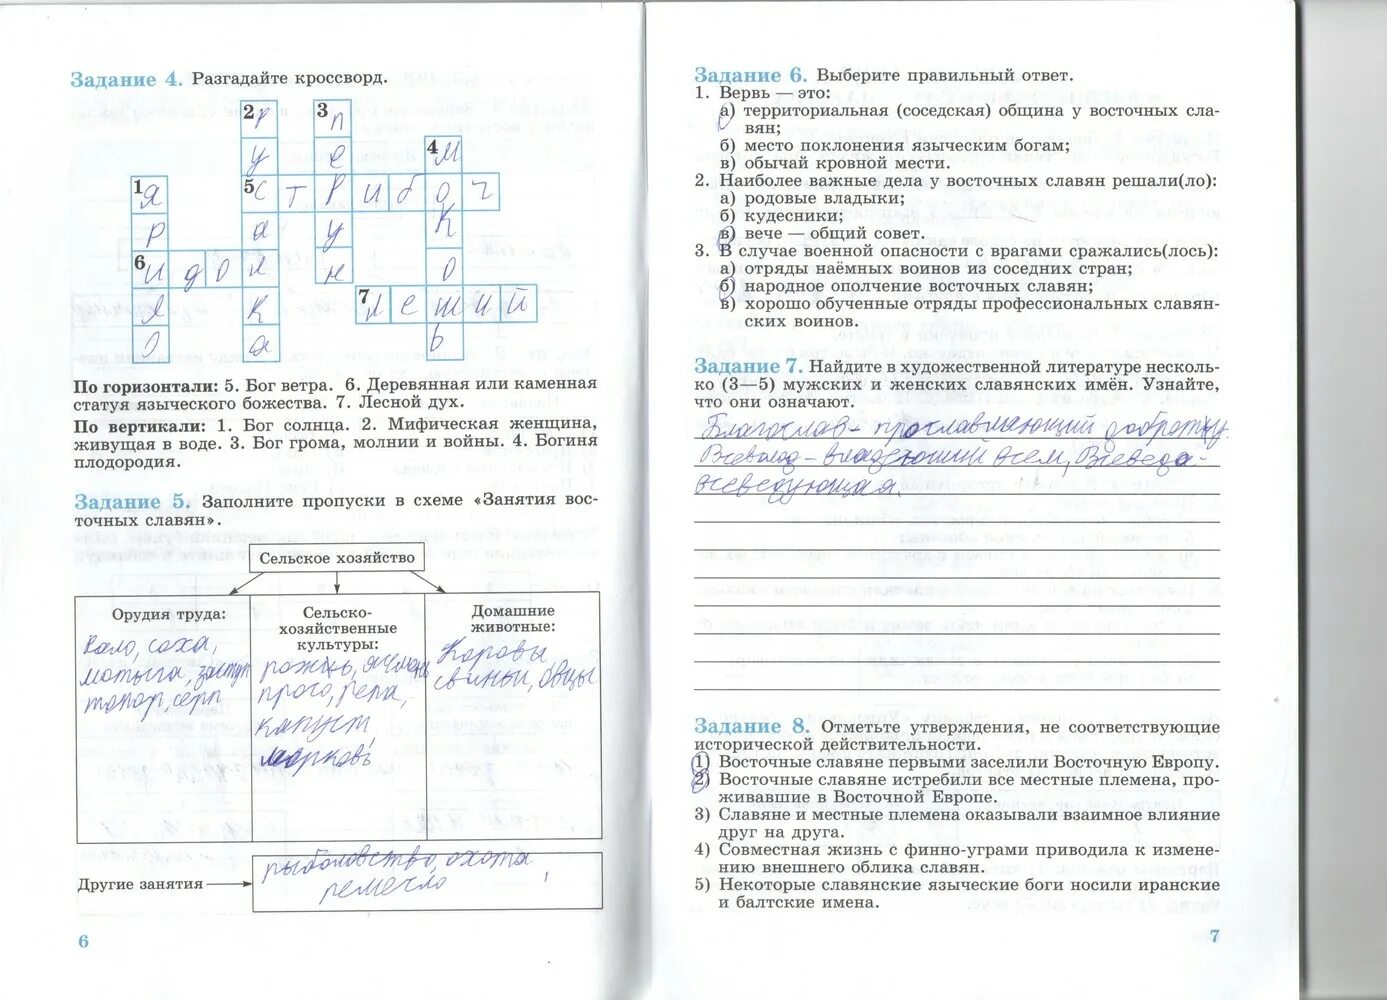 Задание 4. Разгадайте кроссворд.
2 р 3 п
у е 4 м
1 я 5 с т р и б о г
р а у к
6 и д о л н о
л к 7 л е ш и й
о а ь
По горизонтали: 5. Бог ветра. 6. Деревянная или каменная
статуя языческого божества. 7. Лесной дух.
По вертикали: 1. Бог солнца. 2. Мифическая женщина,
живущая в воде. 3. Бог грома, молнии и войны. 4. Богиня
плодородия.
Задание 5. Заполните пропуски в схеме «Занятия вос-
точных славян».
Сельское хозяйство
Орудия труда:
Рало, соха,
мотыга, заступ
топор, серп
Сельско-
хозяйственные
культуры:
рожь, ячмень
просо, репа,
капуст
морковь
Домашние
животные:
Коровы
свиньи, овцы
Другие занятия
рыболовство, охота
ремесло
6
Задание 6. Выберите правильный ответ.
1. Вервь — это:
а) территориальная (соседская) община у восточных сла-
вян;
б) место поклонения языческим богам;
в) обычай кровной мести.
2. Наиболее важные дела у восточных славян решали(ло):
а) родовые владыки;
б) кудесники;
в) вече — общий совет.
3. В случае военной опасности с врагами сражались(лось):
а) отряды наёмных воинов из соседних стран;
б) народное ополчение восточных славян;
в) хорошо обученные отряды профессиональных славян-
ских воинов.
Задание 7. Найдите в художественной литературе несколь-
ко (3—5) мужских и женских славянских имён. Узнайте,
что они означают.
Благослав - прославляющий доброту.
Всеволод - владеющий всем, Всеведа -
всеведующая.
Задание 8. Отметьте утверждения, не соответствующие
исторической действительности.
1) Восточные славяне первыми заселили Восточную Европу.
2) Восточные славяне истребили все местные племена, про-
живавшие в Восточной Европе.
3) Славяне и местные племена оказывали взаимное влияние
друг на друга.
4) Совместная жизнь с финно-уграми приводила к измене-
нию внешнего облика славян.
5) Некоторые славянские языческие боги носили иранские
и балтские имена.
7